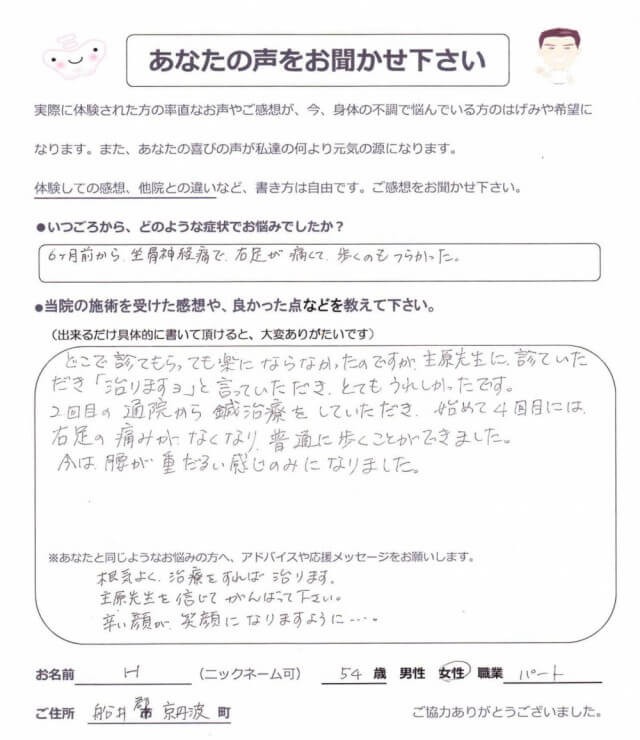 あなたの声をお聞かせ下さい
実際に体験された方の率直なお声やご感想が、今、身体の不調で悩んでいる方のはげみや希望に
なります。また、あなたの喜びの声が私達の何より元気の源になります。
体験しての感想、他院との違いなど、書き方は自由です。ご感想をお聞かせ下さい。
●いつごろから、どのような症状でお悩みでしたか?
6ヶ月前から、坐骨神経痛で、右足が痛くて、歩くのもつらかった。
●当院の施術を受けた感想や、良かった点などを教えて下さい。
(出来るだけ具体的に書いて頂けると、大変ありがたいです)
どこで診てもらっても楽にならなかったのですが、主原先生に、診ていた
だき「治りますヨ」と言っていただき、とてもうれしかったです。
2回目の通院から鍼治療をしていただき、始めて4回目には、
右足の痛みがなくなり、普通に歩くことができました。
今は、腰が重だるい感じのみになりました。
※あなたと同じようなお悩みの方へ、アドバイスや応援メッセージをお願いします。
根気よく、治療をすれば治ります。
主原先生を信じてがんばって下さい。
辛い顔が、笑顔になりますように…。
お名前 H (ニックネーム可) 54 歳 男性 女性 職業 パート
ご住所 船井郡市 京丹波 町 ご協力ありがとうございました。